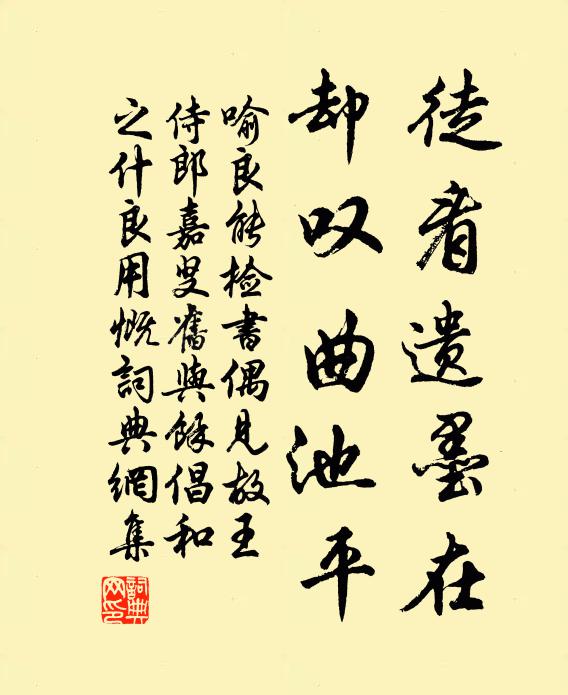 徒看遗墨在
却叹曲池平
喻良能检书偶见故王
侍郎嘉叟旧與馀倡和
之什良用慨詞典網集
詞典网印